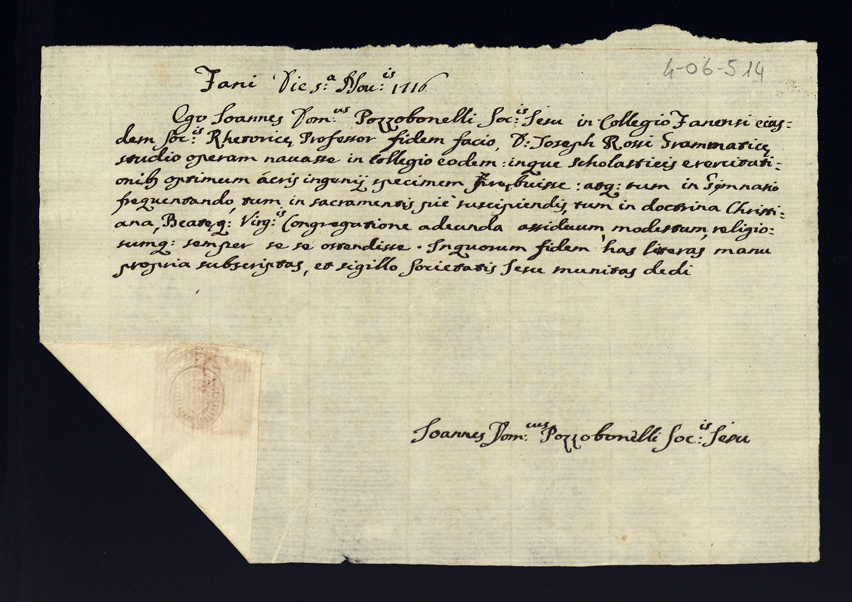 4-06-514
Fani Die 5.ª Nov:is 1716
Ego Ioannes Dom:cus Pozzobonelli Soc:is Iesu in Collegio Fanensi eius-
dem Soc:is Rhetoricę Professor fidem facio, D: Joseph Rossi Grammaticę
studio operam navasse in Collegio eodem: inque scholasticis exercitati-
onibꝫ optimum acris ingenij specimem Prębuisse: atq: tum in Gymnasio
frequentando, tum in sacramentis piè suscipiendis, tum in doctrina Christi-
ana, Beatęq: Virg:is Congregatione adeunda assiduum modestum, religio-
sumq: semper se se ostendisse. Inquorum fidem has literas manu
propria subscriptas, et sigillo Societatis Iesu munitas dedi
Ioannes Dom:cus Pozzobonelli Soc:is Iesu